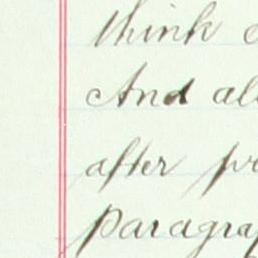 think
And al
after p
Paragra